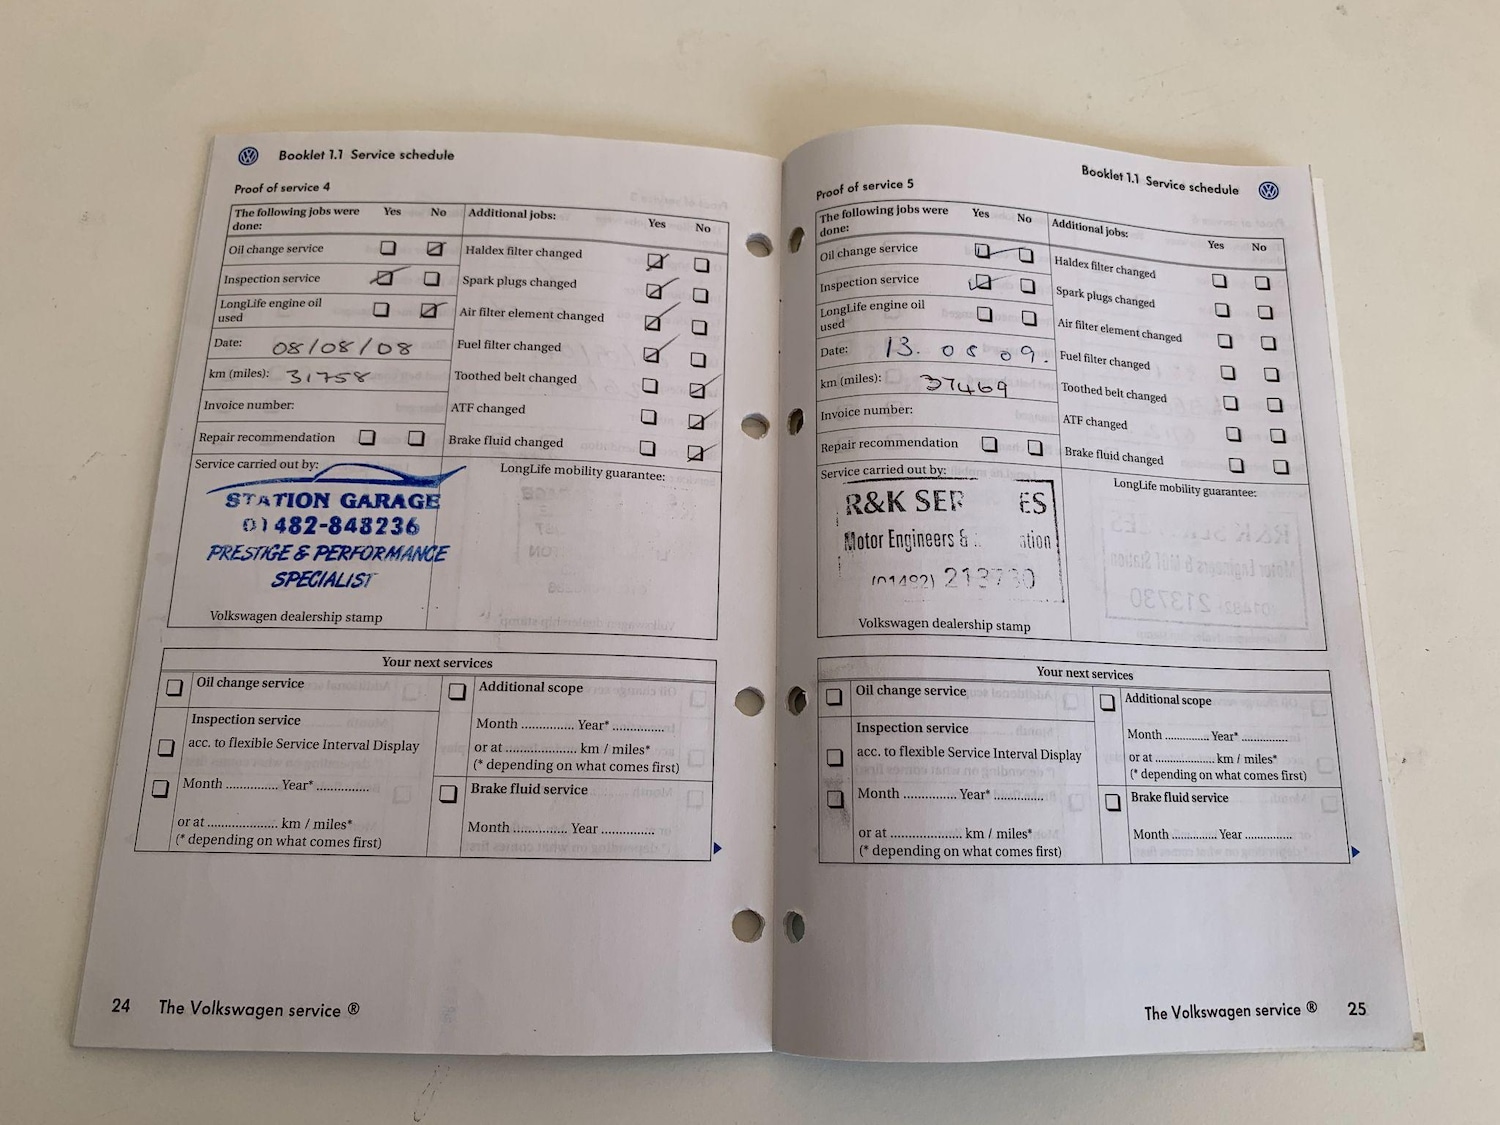 Booklet 1.1 Service schedule
Proof of service 4
The following jobs were done: Yes No
Oil change service
Inspection service
LongLife engine oil used
Date: 08/08/08
km (miles): 31758
Invoice number:
Repair recommendation
Additional jobs: Yes No
Haldex filter changed
Spark plugs changed
Air filter element changed
Fuel filter changed
Toothed belt changed
ATF changed
Brake fluid changed
Service carried out by:
STATION GARAGE
01482-848236
PRESTIGE & PERFORMANCE
SPECIALIST
Volkswagen dealership stamp
LongLife mobility guarantee:
Your next services
Oil change service
Inspection service
acc. to flexible Service Interval Display
Month .............. Year* ..............
or at ..................... km / miles*
(* depending on what comes first)
Additional scope
Month .............. Year* ..............
or at ..................... km / miles*
(* depending on what comes first)
Brake fluid service
Month .............. Year ..............
24 The Volkswagen service ®
Booklet 1.1 Service schedule
Proof of service 5
The following jobs were done: Yes No
Oil change service
Inspection service
LongLife engine oil used
Date: 13. 08 09.
km (miles): 37469
Invoice number:
Repair recommendation
Additional jobs: Yes No
Haldex filter changed
Spark plugs changed
Air filter element changed
Fuel filter changed
Toothed belt changed
ATF changed
Brake fluid changed
Service carried out by:
R&K SER ES
Motor Engineers & ation
(01482) 213730
Volkswagen dealership stamp
LongLife mobility guarantee:
Your next services
Oil change service
Inspection service
acc. to flexible Service Interval Display
Month .............. Year* ..............
or at ..................... km / miles*
(* depending on what comes first)
Additional scope
Month .............. Year* ..............
or at ..................... km / miles*
(* depending on what comes first)
Brake fluid service
Month .............. Year ..............
The Volkswagen service ® 25